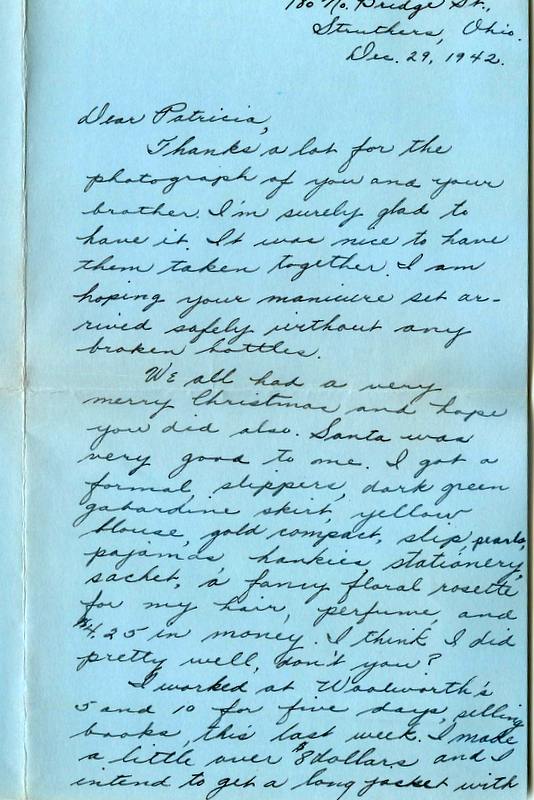 180 No. Bridge St.,
Struthers, Ohio.
Dec. 29, 1942.
Dear Patricia,
Thanks a lot for the
photograph of you and your
brother. I'm surely glad to
have it. It was nice to have
them taken together. I am
hoping your manicure set ar-
rived safely without any
broken bottles.
We all had a very
merry Christmas and hope
you did also. Santa was
very good to me. I got a
formal, slippers, dark green
gabardine skirt, yellow
blouse, gold compact, slip, pearls,
pajamas hankies, stationery,
sachet, a fancy floral rosette
for my hair, perfume, and
$4.25 in money. I think I did
pretty well, don't you?
I worked at Woolworth's
5 and 10 for five days, selling
books, this last week. I made
a little over $8 dollars and I
intend to get a long jacket with